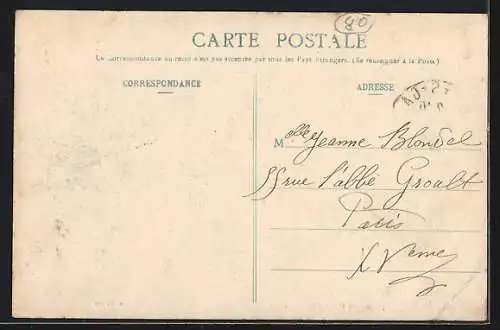 80
CARTE POSTALE
La Correspondance au recto n'est pas acceptée par tous les Pays étrangers. (Se renseigner à la Poste)
CORRESPONDANCE
ADRESSE
Melle Jeanne Blondel
55 rue l'abbé Groult
Paris
XVeme